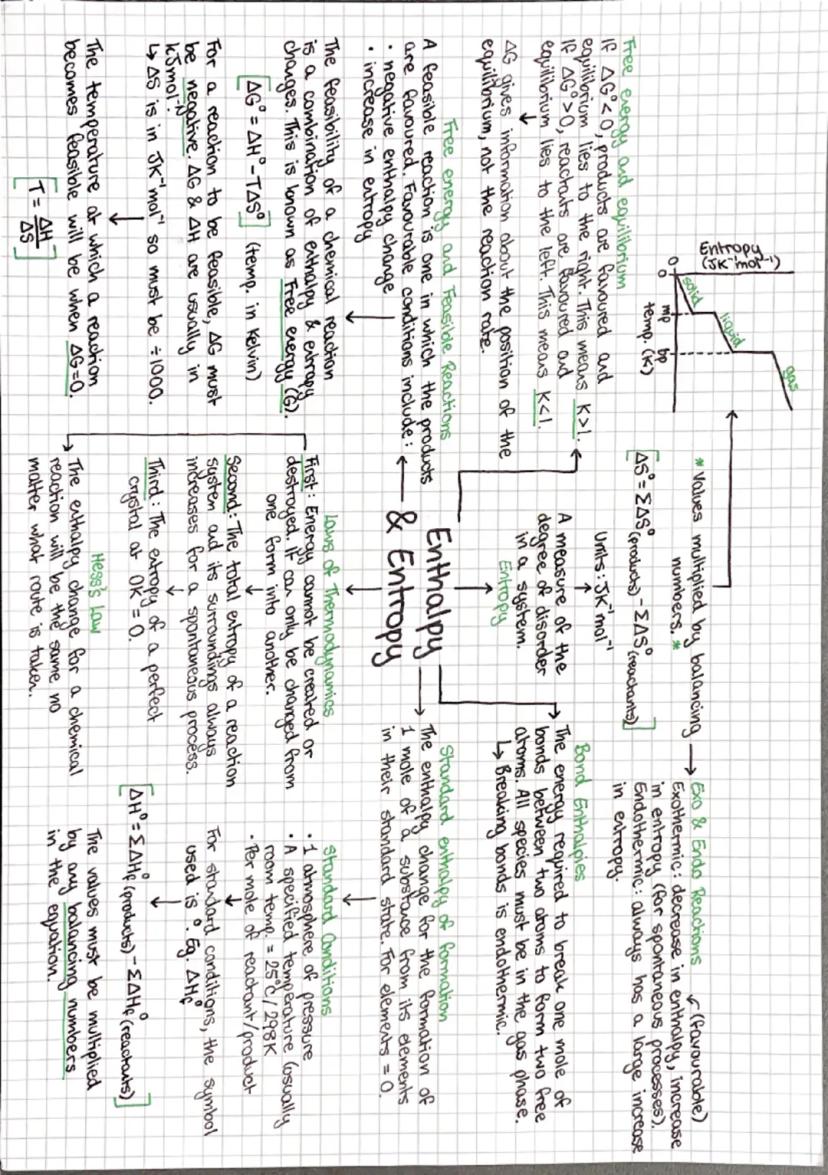 Enthalpy
& Entropy
Free energy and equilibrium
If ΔG°<0, products are favoured and
equilibrium lies to the right. This means K>1.
If ΔG°>0, reactants are favoured and
equilibrium lies to the left. This means K<1.
ΔG gives information about the position of the
equilibrium, not the reaction rate.
Free energy and Feasible Reactions
A feasible reaction is one in which the products
are favoured. Favourable conditions include:
• negative enthalpy change
• increase in entropy
The feasibility of a chemical reaction
is a combination of enthalpy & entropy
changes. This is known as Free energy (G).
[ΔG° = ΔH° - TΔS°] (temp. in Kelvin)
For a reaction to be feasible, ΔG must
be negative. ΔG & ΔH are usually in
kJmol⁻¹.
↳ ΔS is in JK⁻¹mol⁻¹ so must be ÷1000.
The temperature at which a reaction
becomes feasible will be when ΔG=0.
[T = ΔH/ΔS]
Entropy
(JK⁻¹mol⁻¹)
0
0
mp
bp
temp. (K)
solid
liquid
gas
* Values multiplied by balancing
numbers. *
[ΔS° = ΣΔS°(products) - ΣΔS°(reactants)]
Units: JK⁻¹mol⁻¹
A measure of the
degree of disorder
in a system.
Entropy
Laws of Thermodynamics
First: Energy cannot be created or
destroyed. It can only be changed from
one form into another.
Second: The total entropy of a reaction
system and its surroundings always
increases for a spontaneous process.
Third: The entropy of a perfect
crystal at 0K = 0.
Hess's Law
The enthalpy change for a chemical
reaction will be the same no
matter what route is taken.
Exo & Endo Reactions
(favourable)
Exothermic: decrease in enthalpy, increase
in entropy (for spontaneous processes).
Endothermic: always has a large increase
in entropy.
Bond Enthalpies
The energy required to break one mole of
bonds between two atoms to form two free
atoms. All species must be in the gas phase.
↳ Breaking bonds is endothermic.
Standard enthalpy of formation
The enthalpy change for the formation of
1 mole of a substance from its elements
in their standard state. For elements = 0.
Standard Conditions
• 1 atmosphere of pressure
• A specified temperature (usually
room temp. = 25°C / 298K
• Per mole of reactant/product
For standard conditions, the symbol
used is °. Eg. ΔHf°
[ΔH° = ΣΔHf°(products) - ΣΔHf°(reactants)]
The values must be multiplied
by any balancing numbers
in the equation.